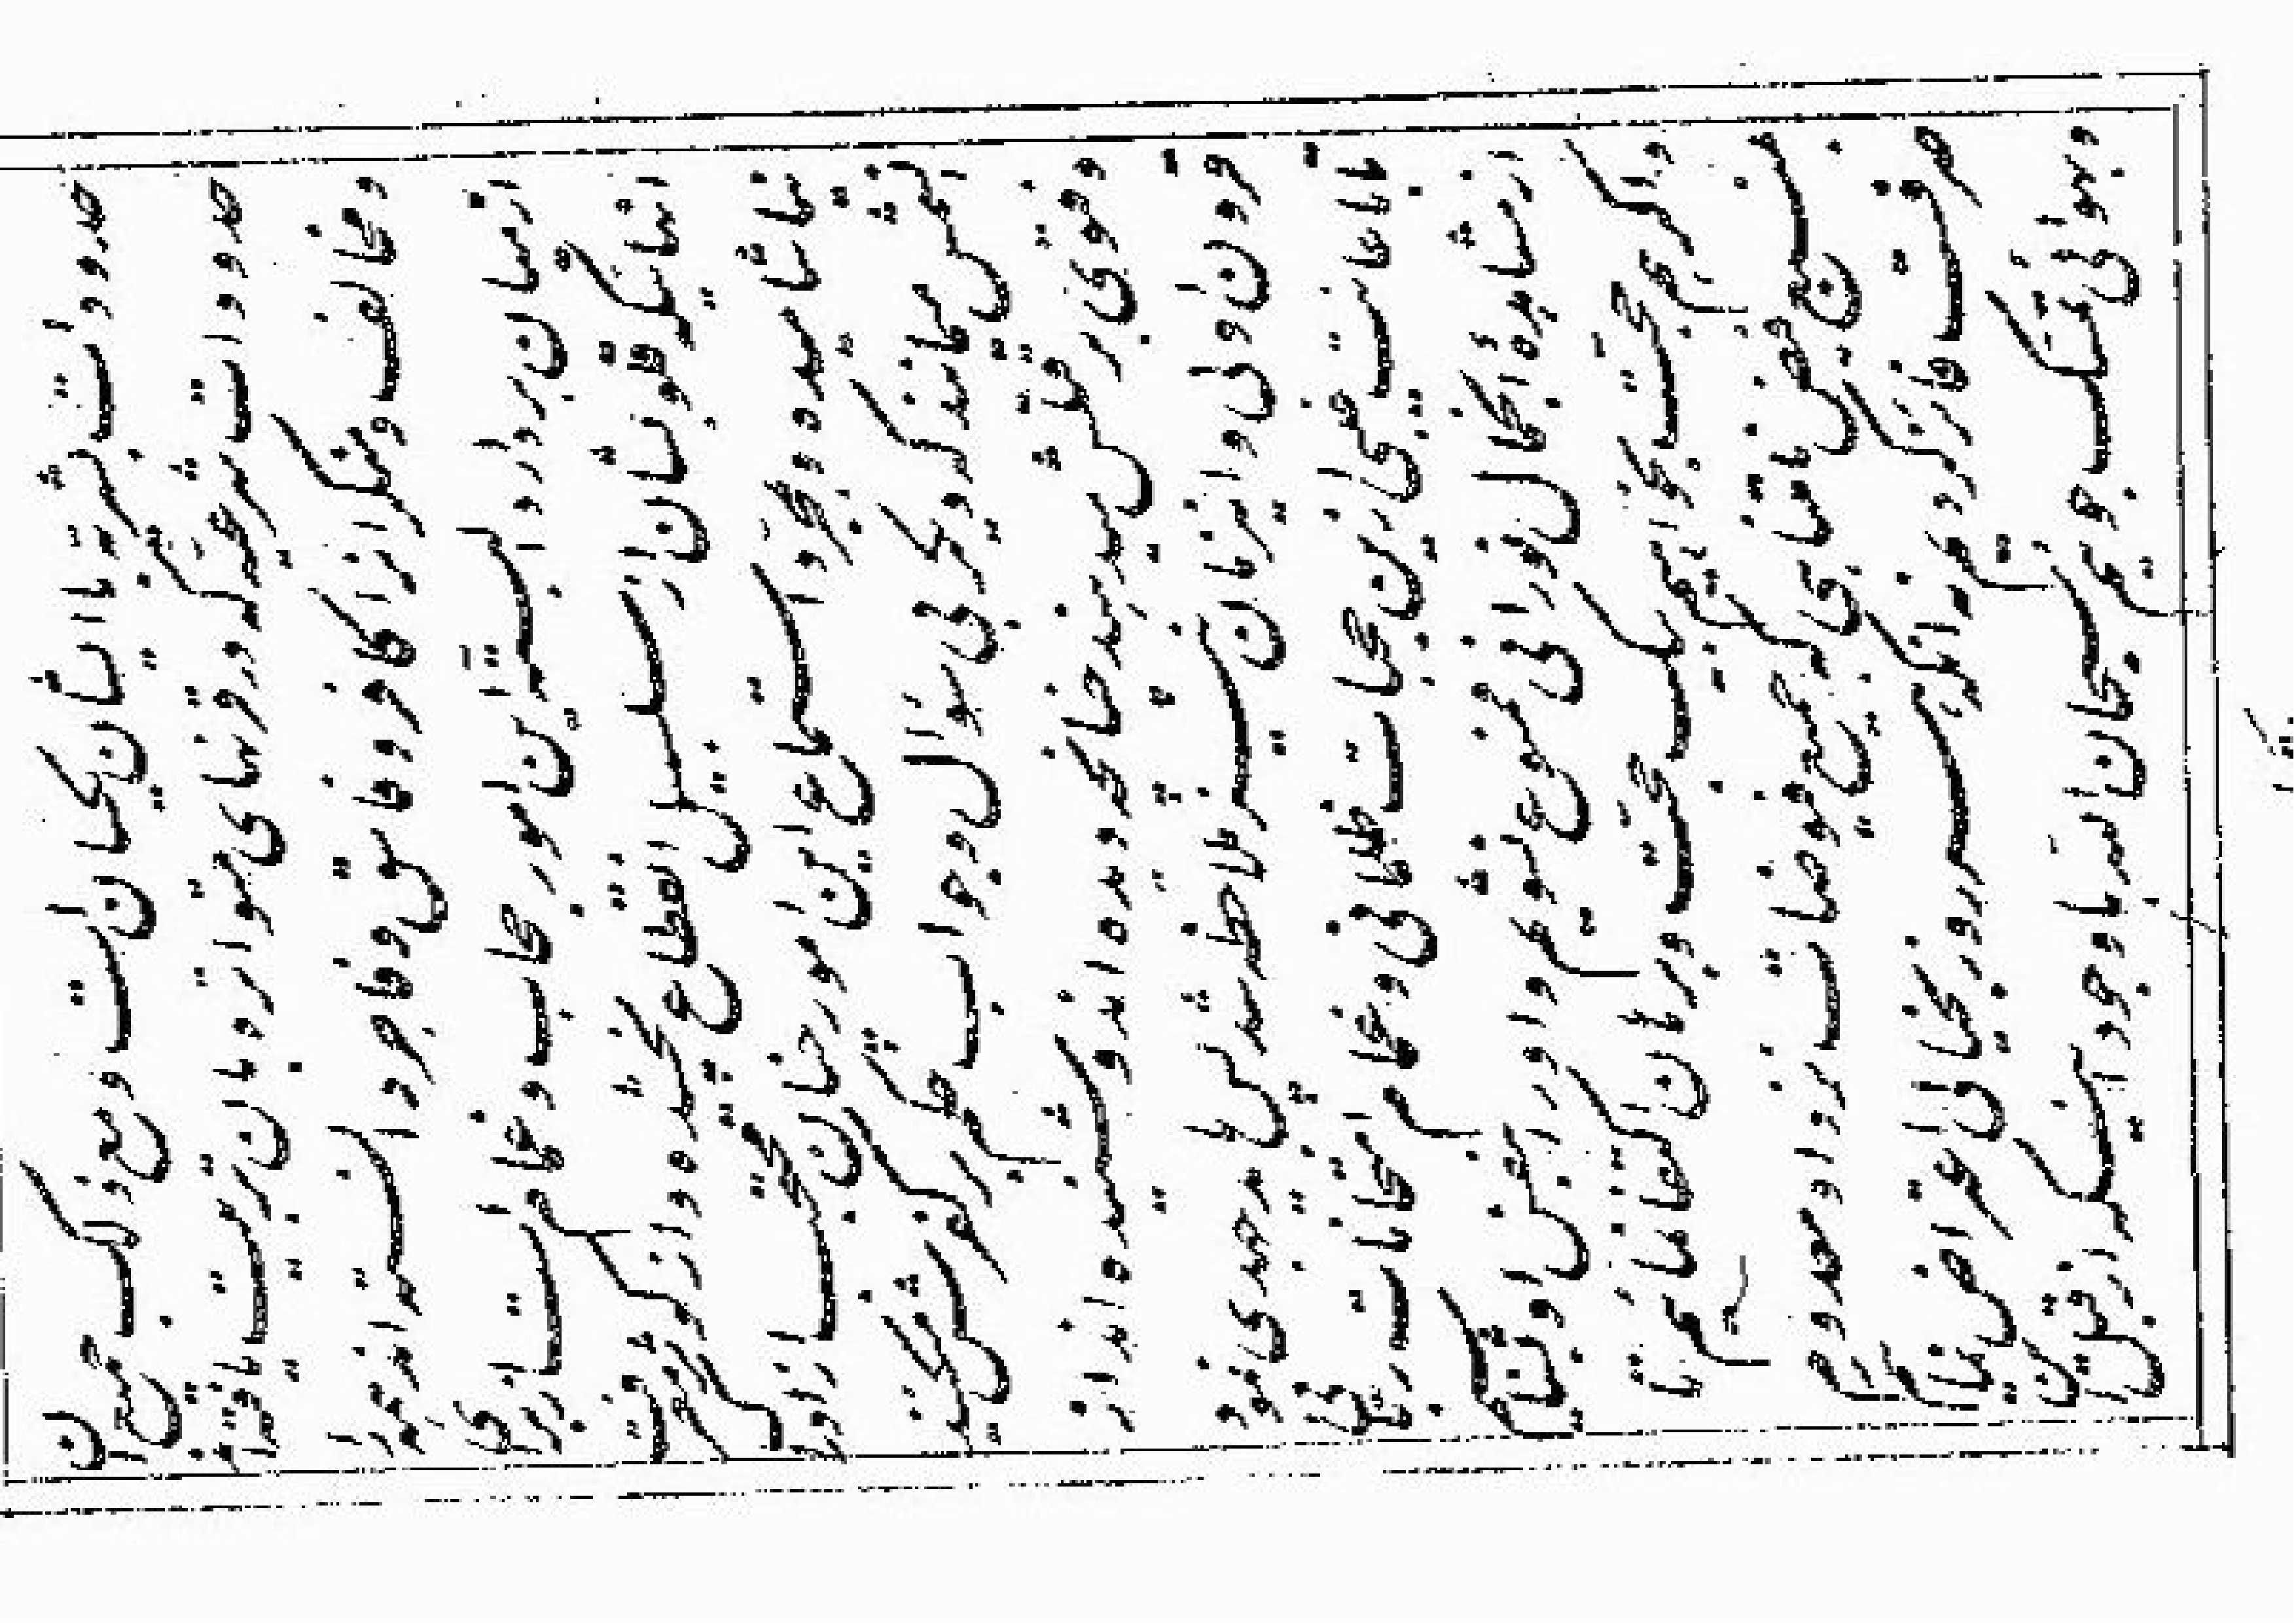 حدودات بشریه با ایشان یکسان است و مع ذلک جمیع این
حدودات شرعیه که در قرنهای متواتر بان تربیت یافته اند
و مخالف و منکر انرا کافر و فاسق و فاجر دانسته اند جمیع را
از میان بردارد البته این امور حجاب و غمام است از برای
انهائیکه قلوبشان از سلسبیل انقطاع نچشیده و از کوثر معرفت
نیاشامیده و بمجرد استماع این امور چنان محتجب از ادراک
ان شمس میمانند که دیگر بی سؤال و جواب حکم بر کفرش میکنند
و فتوی بر قتلش میدهند چنانچه دیده اند و شنیده اند از
قرون اولی و این زمان نیز ملاحظه شد پس باید جهدی نمود
تا باعانت غیبی ازین حجبات ظلمانی و غمام امتحانات ربانی
از مشاهده ان جمال نورانی ممنوع نشویم و او را بنفس او بشناسیم
و اگر هم حجت بخواهیم بیک حجت و برهان اکتفا نمائیم تا
بمنبع فیض نامتناهی که جمیع فیوضات نزد او معدوم
صرف است فائز گردیم نه اینکه هر روز بخیالی اعتراض نمائیم
و بهوائی تمسک جوئیم سبحان الله با وجود اینکه از قبل این